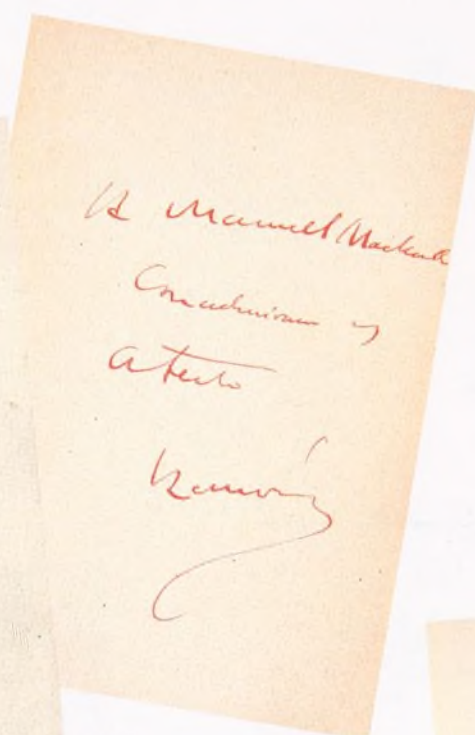 A Manuel Machado
Con admiracion y
afecto
Ramón